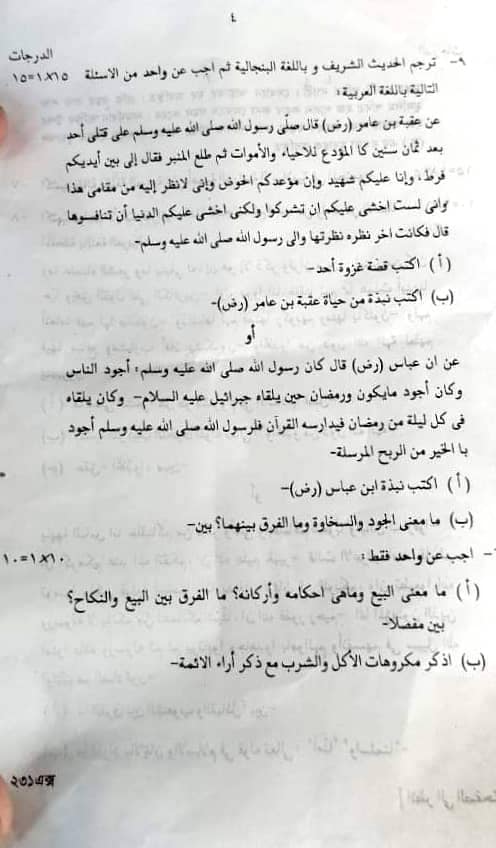 ٤
الدرجات
٩- ترجم الحديث الشريف و باللغة البنجالية ثم اجب عن واحد من الاسئلة ١٥=١×١٥
التالية باللغة العربية:
عن عقبة بن عامر (رض) قال صلّى رسول الله صلى الله عليه وسلم على قتلى أحد
بعد ثمان سنين كا المؤدع للاحياء والأموات ثم طلع المنبر فقال إلى بين أيديكم
فرط، وإنا عليكم شهيد وإن مؤعدكم الحوض وإنى لانظر إليه من مقامى هذا
وانى لست اخشى عليكم ان تشركوا ولكنى اخشى عليكم الدنيا أن تنافسوها
قال فكانت اخر نظره نظرتها والى رسول الله صلى الله عليه وسلم-
(أ) اكتب قصة غزوة أحد-
(ب) اكتب نبذة من حياة عقبة بن عامر (رض)-
أو
عن ان عباس (رض) قال كان رسول الله صلى الله عليه وسلم: أجود الناس
وكان أجود مايكون ورمضان حين يلقاه جبرائيل عليه السلام- وكان يلقاه
فى كل ليلة من رمضان فيدارسه القرآن فلرسول الله صلى الله عليه وسلم أجود
با الخير من الربح المرسلة-
(أ) اكتب نبذة ابن عباس (رض)-
(ب) ما معنى الجود والسخاوة وما الفرق بينهما؟ بين-
اجب عن واحد فقط: ١٠=١×١٠
(أ) ما معنى البيع وماهى احكامه وأركانه؟ ما الفرق بين البيع والنكاح؟
بين مفصلا-
(ب) اذكر مكروهات الأكل والشرب مع ذكر أراء الائمة-
২৩১এক্স